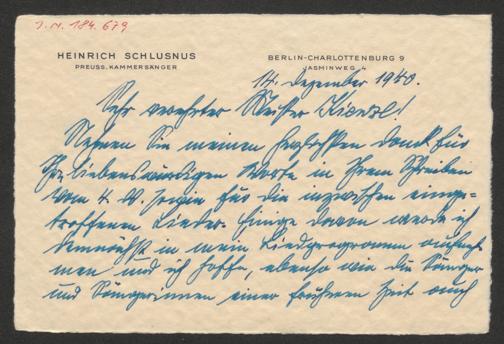 J.N. 184.679
HEINRICH SCHLUSNUS
PREUSS. KAMMERSÄNGER
BERLIN-CHARLOTTENBURG 9
JASMINWEG 4
14. Dezember 1940.
Sehr verehrter Meister Kienzl!
Nehmen Sie meinen herzlichsten Dank für
Ihre liebenswürdigen Worte in Ihrem Schreiben
vom 4. ds. sowie für die inzwischen einge-
troffenen Lieder. Einige davon werde ich
demnächst in mein Liedprogramm aufneh-
men und ich hoffe, ebenso wie die Sänger
und Sängerinnen einer früheren Zeit auch